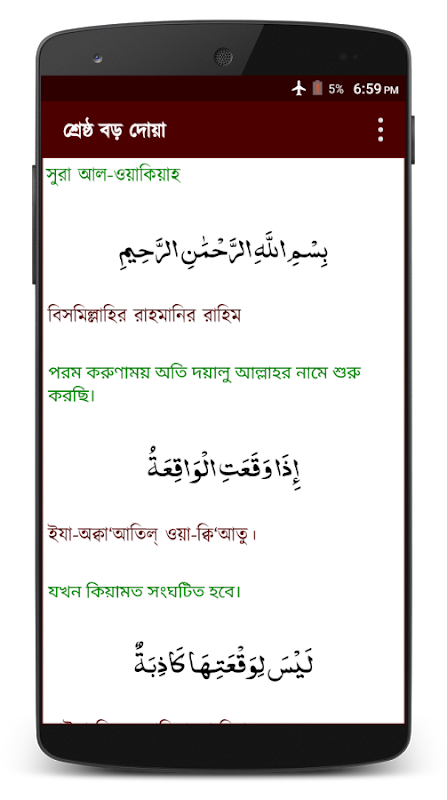 5% 6:59 PM
শ্রেষ্ঠ বড় দোয়া
সুরা আল-ওয়াকিয়াহ
بِسْمِ اللَّهِ الرَّحْمَٰنِ الرَّحِيمِ
বিসমিল্লাহির রাহমানির রাহিম
পরম করুণাময় অতি দয়ালু আল্লাহর নামে শুরু
করছি।
إِذَا وَقَعَتِ الْوَاقِعَةُ
ইযা-অক্বা‘আতিল্ ওয়া-ক্বি‘আতু।
যখন কিয়ামত সংঘটিত হবে।
لَيْسَ لِوَقْعَتِهَا كَاذِبَةٌ